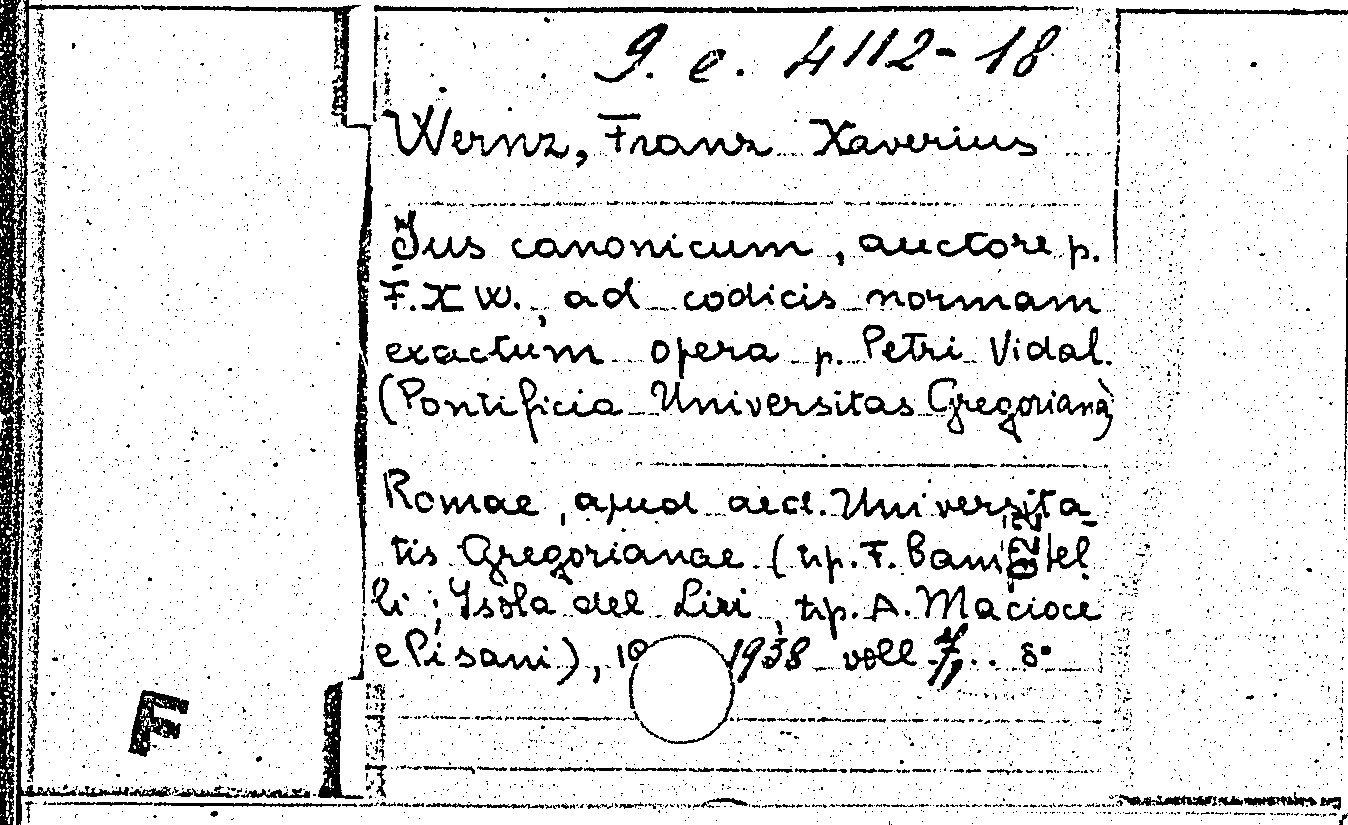 9. e. 4112-18
Wernz, Franz Xaverius
Jus canonicum, auctore p.
F.X W., ad codicis normam
exactum opera p. Petri Vidal.
(Pontificia Universitas Gregoriana)
Romae, apud aed. Universita_
tis Gregorianae (tip. F.
li; Isola del Liri, tip. A. Macioce
e Pisani), 1938 voll 7. 8°
F